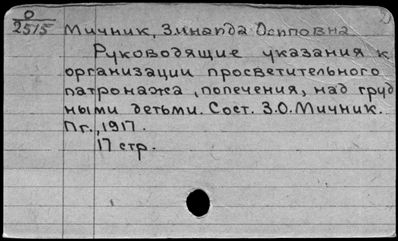 O
2515
Мичник, Зинаида Осиповна
Руководящие указания к
организации просветительного
патронажа, попечения, над груд
ными детьми. Сост. З.О. Мичник.
Пг., 1917.
17 стр.